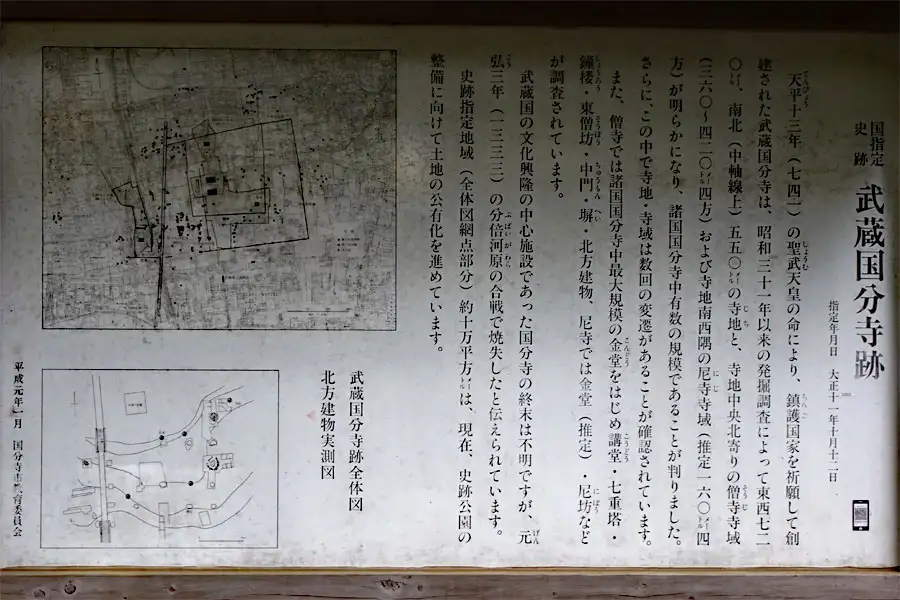 国指定
史跡
武蔵国分寺跡
指定年月日 大正十一年十月十二日
天平十三年(七四一)の聖武天皇の命により、鎮護国家を祈願して創
建された武蔵国分寺は、昭和三十一年以来の発掘調査によって東西七二
〇㍍、南北(中軸線上)五五〇㍍の寺地と、寺地中央北寄りの僧寺寺域
(三六〇～四二〇㍍四方)および寺地南西隅の尼寺寺域(推定一六〇㍍四
方)が明らかになり、諸国国分寺中有数の規模であることが判りました。
さらに、この中で寺地・寺域は数回の変遷があることが確認されています。
また、僧寺では諸国国分寺中最大規模の金堂をはじめ講堂・七重塔・
鐘楼・東僧坊・中門・塀・北方建物、尼寺では金堂(推定)・尼坊など
が調査されています。
武蔵国の文化興隆の中心施設であった国分寺の終末は不明ですが、元
弘三年(一三三三)の分倍河原の合戦で焼失したと伝えられています。
史跡指定地域(全体図網点部分)約十万平方㍍は、現在、史跡公園の
整備に向けて土地の公有化を進めています。
武蔵国分寺跡全体図
北方建物実測図
平成元年一月 国分寺市教育委員会